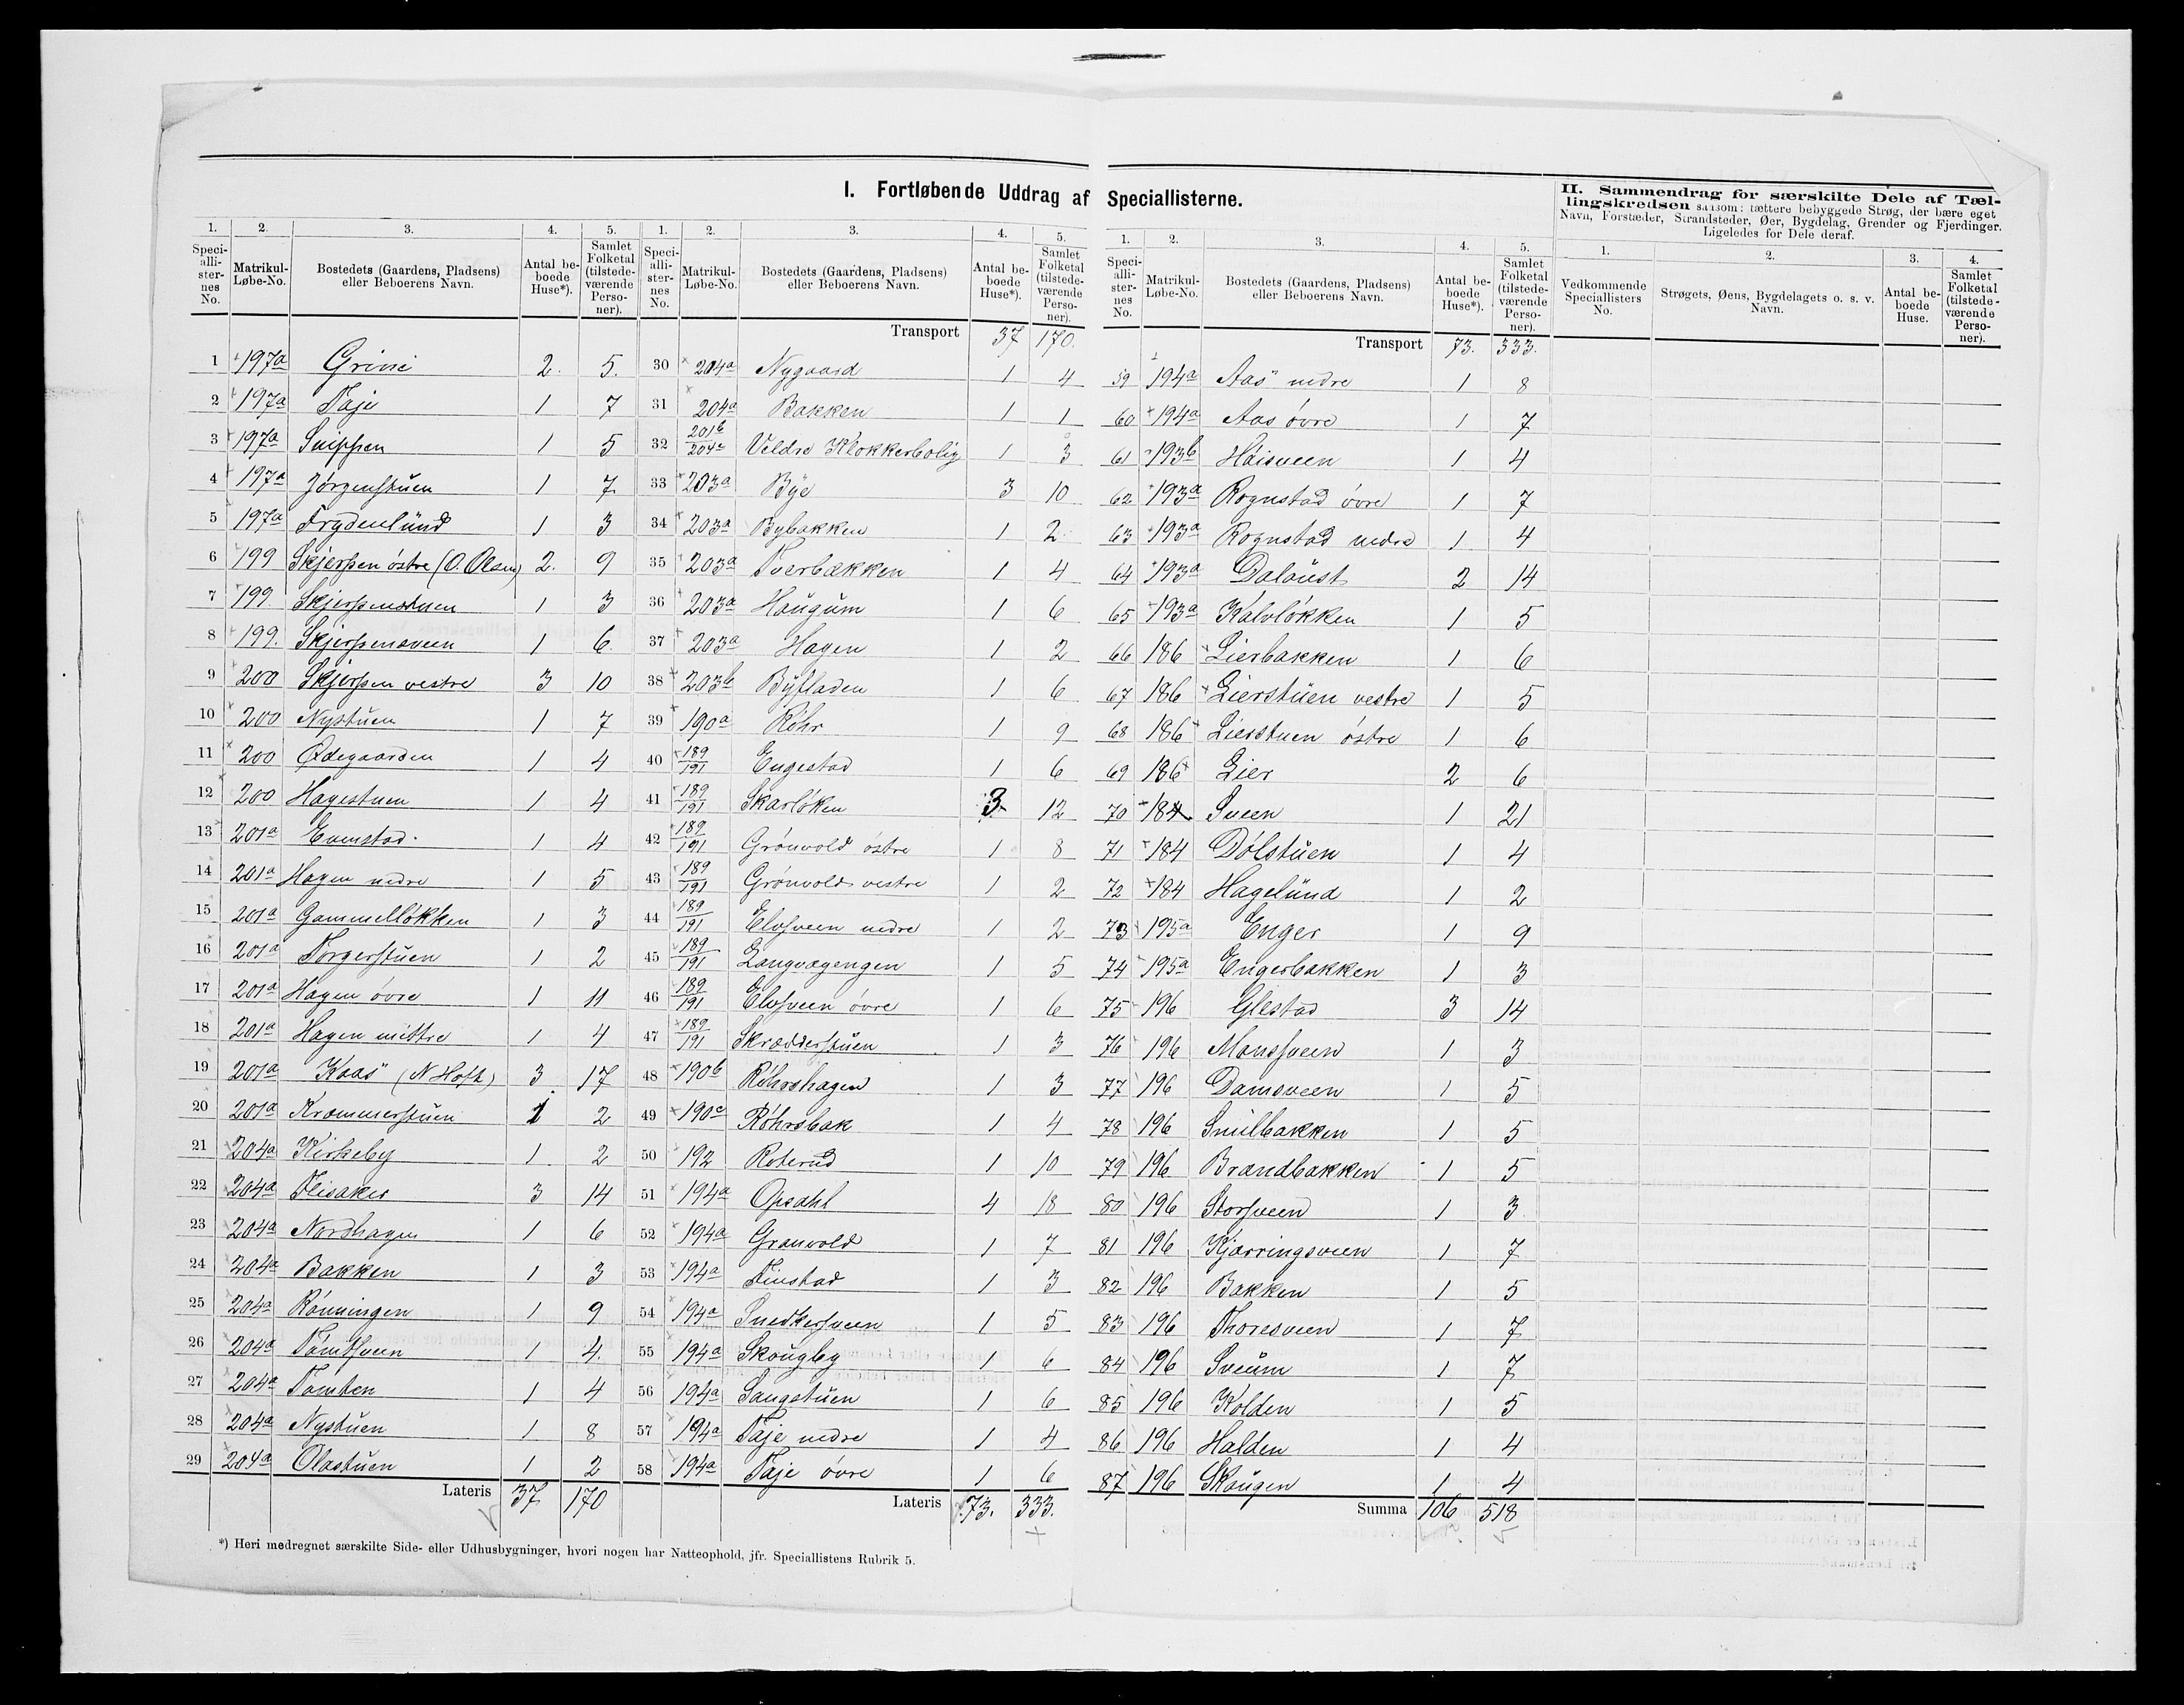 I. Fortløbende Uddrag af Speciallisterne.
II. Sammendrag for særskilte Dele af Tæl-
lingskredsen saasom: tættere bebyggede Strøg, der bære eget
Navn, Forstæder, Strandsteder, Øer, Bygdelag, Grender og Fjerdinger.
Ligeledes for Dele deraf.
1. 2. 3. 4. 5.
Speci-alli-ster-nes No. Matrikul-Løbe-No. Bostedets (Gaardens, Pladsens) eller Beboerens Navn. Antal be-boede Huse*). Samlet Folketal (tilstede-værende Perso-ner).
1 197a Grini 2. 5.
2 197a Taje 1 7
3 197a Snippen 1 5
4 197a Jørgenstuen 1 7
5 197a Frydenlund 1 3
6 199 Skjerpen østre (O. Olsen) 2. 9
7 199 Skjerpenstuen 1 3
8 199. Skjerpensveen 1 6.
9 200 Skjerpen vestre 3 10
10 200 Nystuen 1 7
11 200 Ødegaarden 1 4
12 200 Hagestuen 1 4
13 201a Evenstad 1 4
14 201a Hagen nedre 1 5
15 201a Gammelløkken 1 3
16 201a Torgerstuen 1 2
17 201a Hagen øvre 1 11
18 201a Hagen mittre 1 4
19 201a Kaas (N Hoft) 3 17
20 201a Kræmmerstuen 1 2
21 204a Kirkeby 1 2
22 204a Flisaker 3 14
23 204a Nordhagen 1 6
24 204a Bakken 1 3
25 204a Rønningen 1 9
26 204a Tomtsveen 1 4.
27 204a Tomten 1 4
28 204a Nystuen 1 8
29 204a Olastuen 1 2
Lateris 37 170
1. 2. 3. 4. 5.
Speci-alli-ster-nes No. Matrikul-Løbe-No. Bostedets (Gaardens, Pladsens) eller Beboerens Navn. Antal be-boede Huse*). Samlet Folketal (tilstede-værende Perso-ner).
Transport 37 170.
30 204a Nygaard 1 4
31 204a Bakken 1 1
32 201b/204c Veldre Klokkerbolig 1 3
33 203a Bye 3 10
34 203a Bybakken 1 2
35 203a Tverbakken 1 4
36 203a Haugum 1 6
37 203a Hagen 1 2
38 203b Byfladen 1 6
39 190a Røhr 1 9
40 189/191 Engestad 1 6
41 189/191 Skarløken 3 12
42 189/191 Grønvold østre 1 8
43 189/191 Grønvold vestre 1 2
44 189/191 Elvsveen nedre 1 2
45 189/191 Langvægengen 1 5
46 189/191 Elvsveen øvre 1 6
47 189/191 Skrædderstuen 1 3
48 190b Røhrshagen 1 3
49 190c Røhrsbak 1 4
50 192 Roterud 1 10
51 194a Opsahl 4 18
52 194a Granvold 1 7
53 194a Finstad 1 3
54 194a Snedkersveen 1 5
55 194a Skougby 1 6
56 194a Saugstuen 1 6
57 194a Taje nedre 1 4
58 194a Taje øvre 1 6
Lateris 73. 333.
1. 2. 3. 4. 5.
Speci-alli-ster-nes No. Matrikul-Løbe-No. Bostedets (Gaardens, Pladsens) eller Beboerens Navn. Antal be-boede Huse*). Samlet Folketal (tilstede-værende Perso-ner).
Transport 73. 333.
59 194a Aas nedre 1 8
60 194a Aas øvre 1 7
61 193b Høisveen 1 4
62 193a Rognstad øvre 1 7
63 193a Rognstad nedre 1 4
64 193a Daloust 2 14
65 193a Kalvløkken 1 5
66 186 Lierbakken 1 6
67 186 Lierstuen vestre 1 5
68 186 Lierstuen østre 1 6
69 186 Lier 2 6
70 184 Sveen 1 21
71 184 Dølstuen 1 4
72 184 Hagelund 1 2
73 195a Enger 1 9
74 195a Engerbakken 1 3
75 196 Glestad 3 14
76 196 Monssveen 1 3
77 196 Damsveen 1 5
78 196 Smilbakken 1 5
79 196 Brændbakken 1 5
80 196 Storsveen 1 3
81 196 Kjærringsveen 1 7
82 196 Bakken 1 5
83 196 Thoresveen 1 7
84 196 Sveum 1 7
85 196 Kolden 1 5
86 196 Halden 1 4
87 196 Skougen 1 4
Summa 106 518
1. 2. 3. 4.
Vedkommende Speciallisters No. Strøgets, Øens, Bygdelagets o. s. v. Navn. Antal be-boede Huse. Samlet Folketal (tilstede-værende Perso-ner).
*) Heri medregnet særskilte Side- eller Udhusbygninger, hvori nogen har Natteophold, jfr. Speciallistens Rubrik 5.